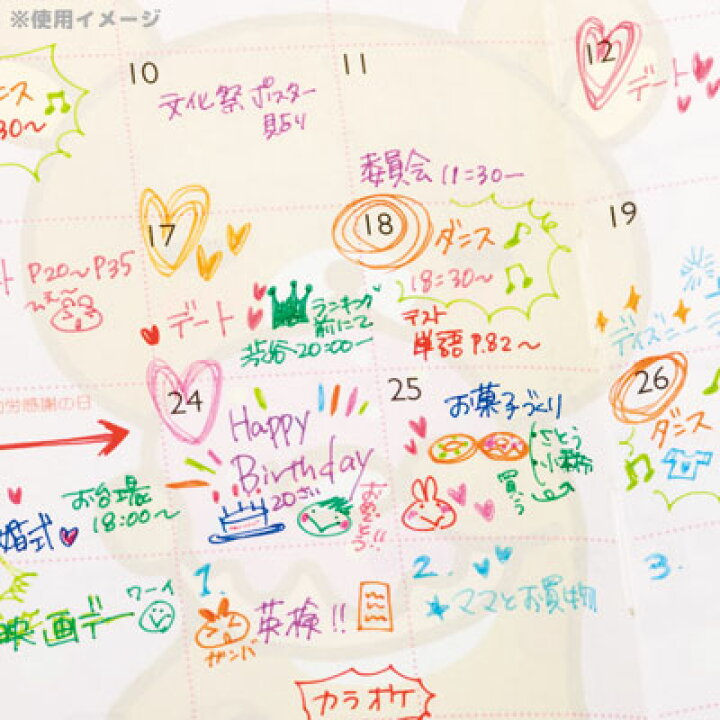 ※使用イメージ
10
文化祭ポスター
貼り
11
委員会 18:30〜
12
デート
ダンス
:30〜
P20〜P35
17
デート
ランキング
前にて
渋谷 20:00〜
18
ダンス
18:30〜
テスト
単語 P.82〜
19
ディズニー
労感謝の日
お台場
18:00〜
婚式
24
Happy
Birthday
20さい
おめでとう!!
25
お菓子づくり
さとう
小麦粉
買う
26
ダンス
映画デー
ワーイ
1.
英検!!
ガンバ
2.
ママとお買物
3.
カラオケ